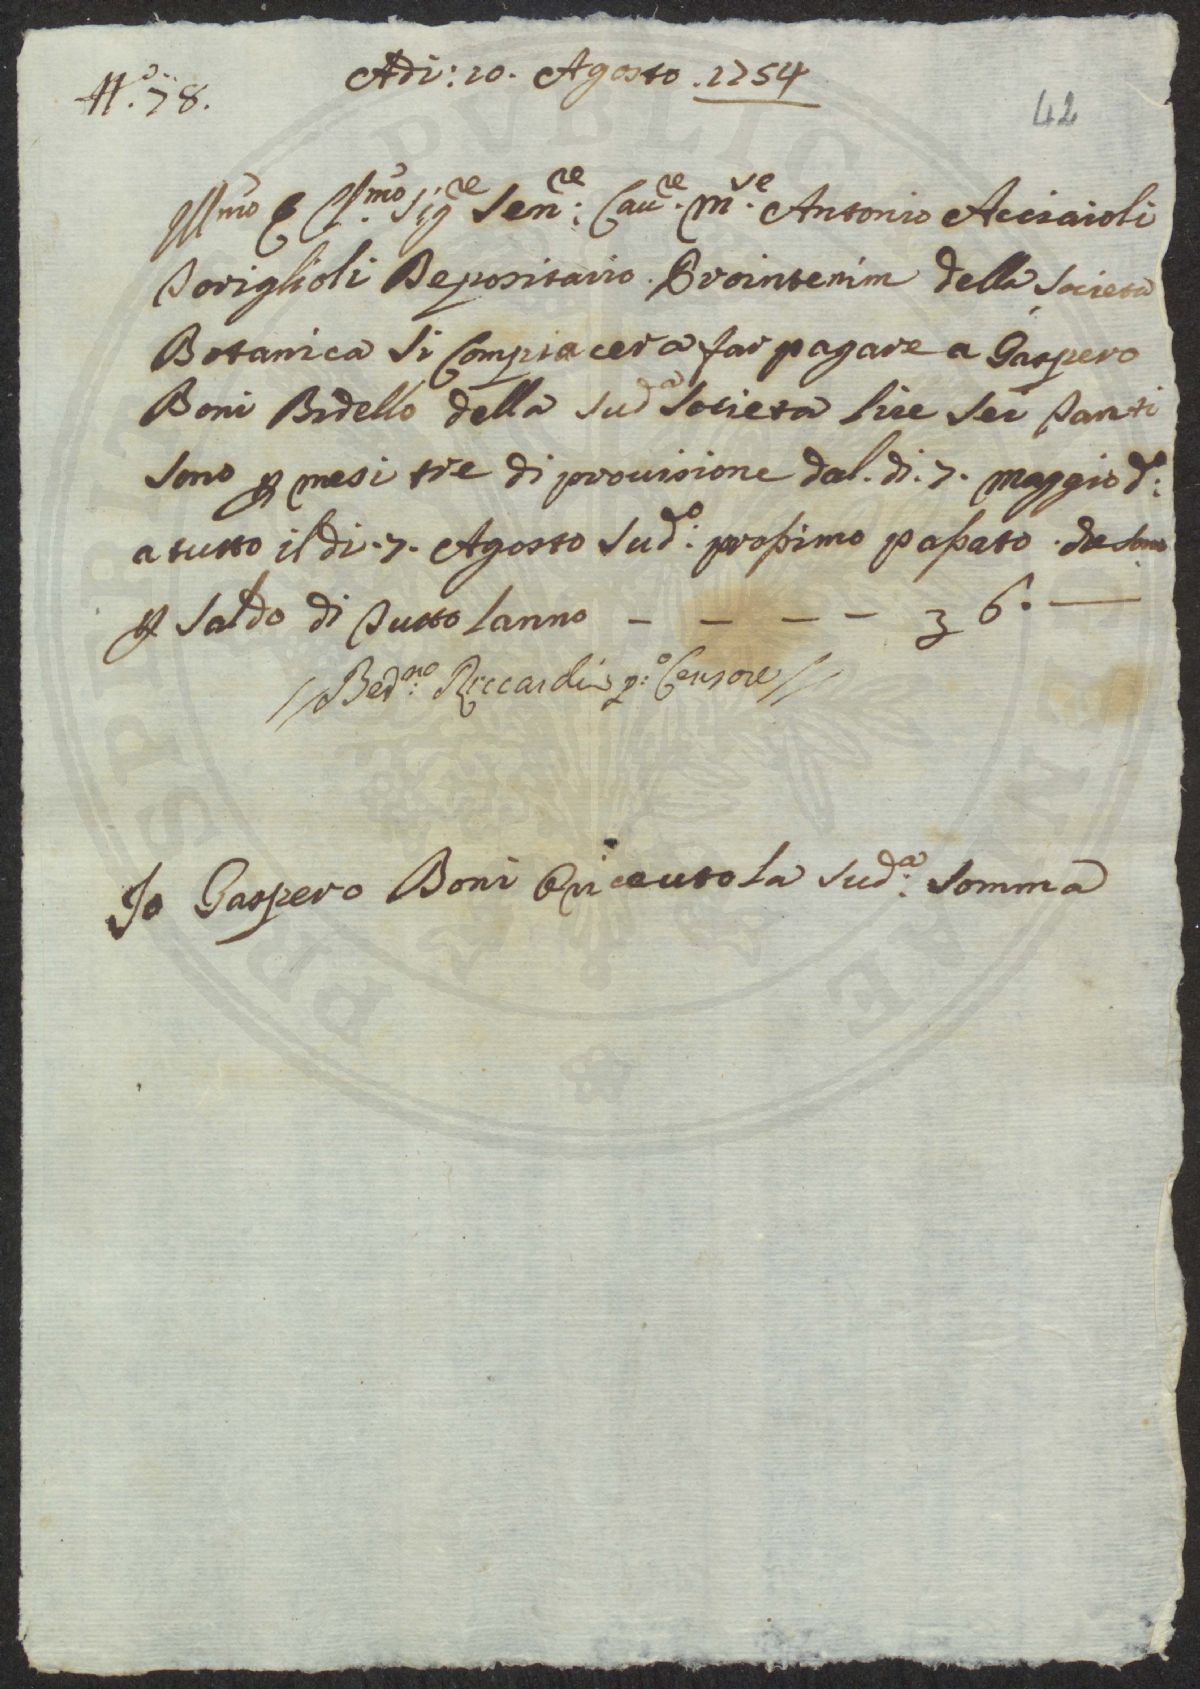 N.º 78.
Adi: 10. Agosto .1754
42
Ill.mo e Cl.mo Sig.re Sen.re: Cau.re M.se Antonio Acciaioli
Toriglioli Depositario Prointerim della Società
Botanica si Compiacerà far pagare a Gaspero
Boni Bidello della Sud.a Società lire sei Tanti
sono p mesi tre di prouisione dal. di. 7. maggio d.o:
a tutto il di. 7. Agosto Sud.o: prossimo passato. che sono
p Saldo di Tutto lanno - - - - 3 6. —
//Bern.no: Riccardi p.o: Censore//
Io Gaspero Boni ò riceuto la Sud.a: Somma
PVBLIC